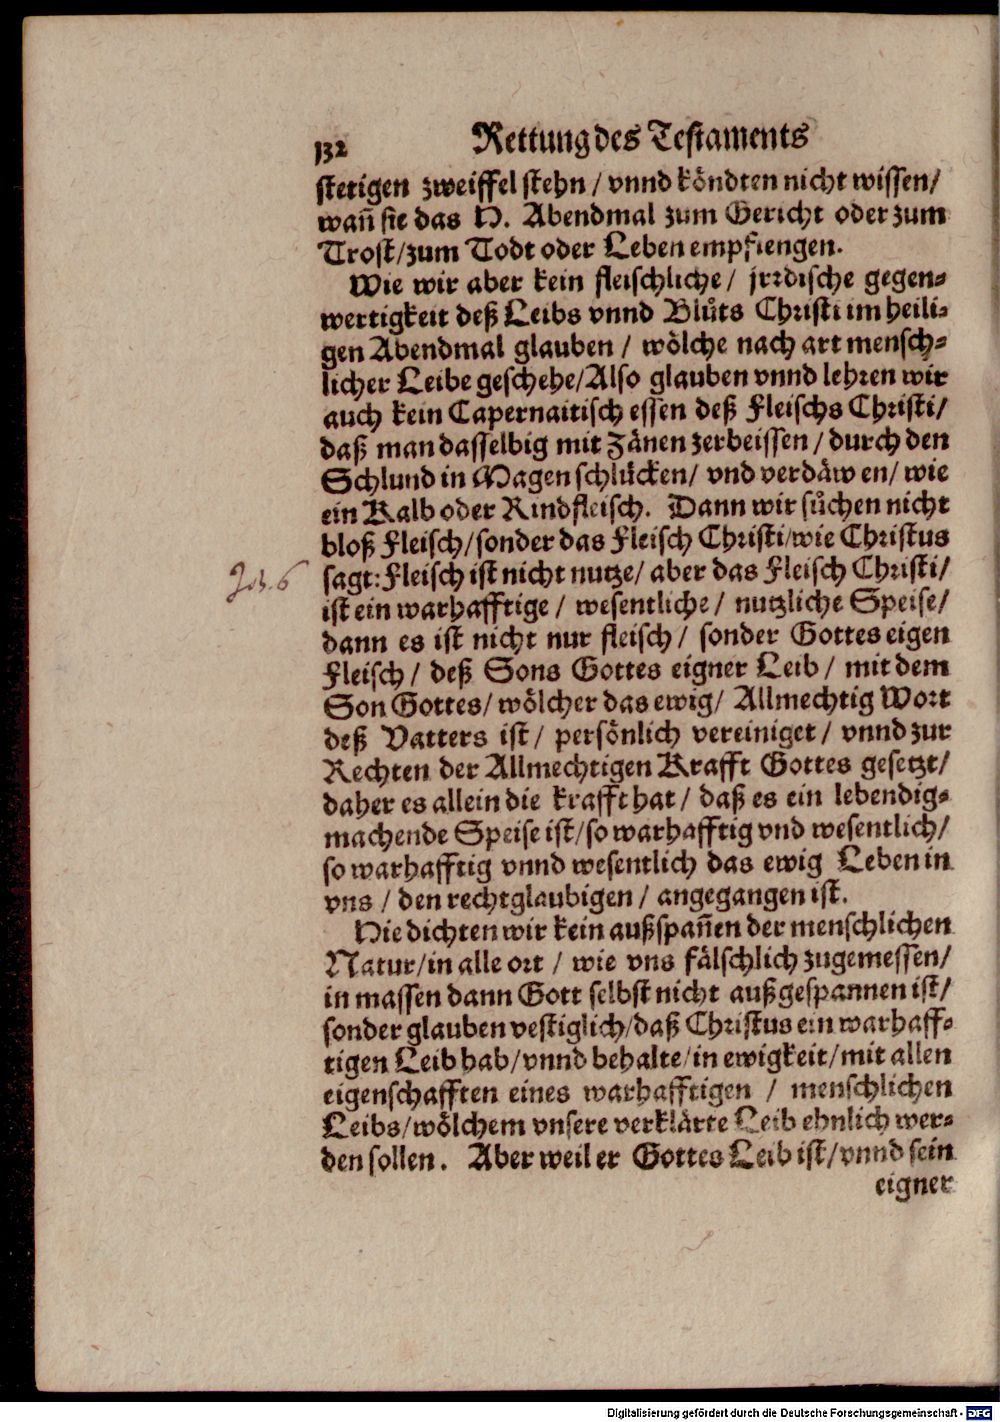 132 Rettung des Testaments
stetigen zweiffel stehn / vnnd köndten nicht wissen/
wañ sie das H. Abendmal zum Gericht oder zum
Trost/zum Todt oder Leben empfiengen.
Wie wir aber kein fleischliche / jrrdische gegen-
wertigkeit deß Leibs vnnd Blůts Christi im heili-
gen Abendmal glauben / wölche nach art mensch-
licher Leibe geschehe/Also glauben vnnd lehren wir
auch kein Capernaitisch essen deß Fleischs Christi/
daß man dasselbig mit Zänen zerbeissen / durch den
Schlund in Magen schlücken/ vnd verdäwen/ wie
ein Kalb oder Rindfleisch. Dann wir sůchen nicht
bloß Fleisch/sonder das Fleisch Christi/wie Christus
Joh. 6
sagt: Fleisch ist nicht nutze/ aber das Fleisch Christi/
ist ein warhafftige / wesentliche / nutzliche Speise/
dann es ist nicht nur fleisch / sonder Gottes eigen
Fleisch / deß Sons Gottes eigner Leib / mit dem
Son Gottes/ wölcher das ewig/ Allmechtig Wort
deß Vatters ist / persönlich vereiniget / vnnd zur
Rechten der Allmechtigen Krafft Gottes gesetzt/
daher es allein die krafft hat / daß es ein lebendig-
machende Speise ist/so warhafftig vnd wesentlich/
so warhafftig vnnd wesentlich das ewig Leben in
vns / den rechtglaubigen / angegangen ist.
Hie dichten wir kein außspañen der menschlichen
Natur/in alle ort / wie vns fälschlich zugemessen/
in massen dann Gott selbst nicht außgespannen ist/
sonder glauben vestiglich/daß Christus ein warhaff-
tigen Leib hab/vnnd behalte/in ewigkeit/mit allen
eigenschafften eines warhafftigen / menschlichen
Leibs/wölchem vnsere verklärte Leib ehnlich wer-
den sollen. Aber weil er Gottes Leib ist/vnnd sein
eigner
Digitalisierung gefördert durch die Deutsche Forschungsgemeinschaft - DFG